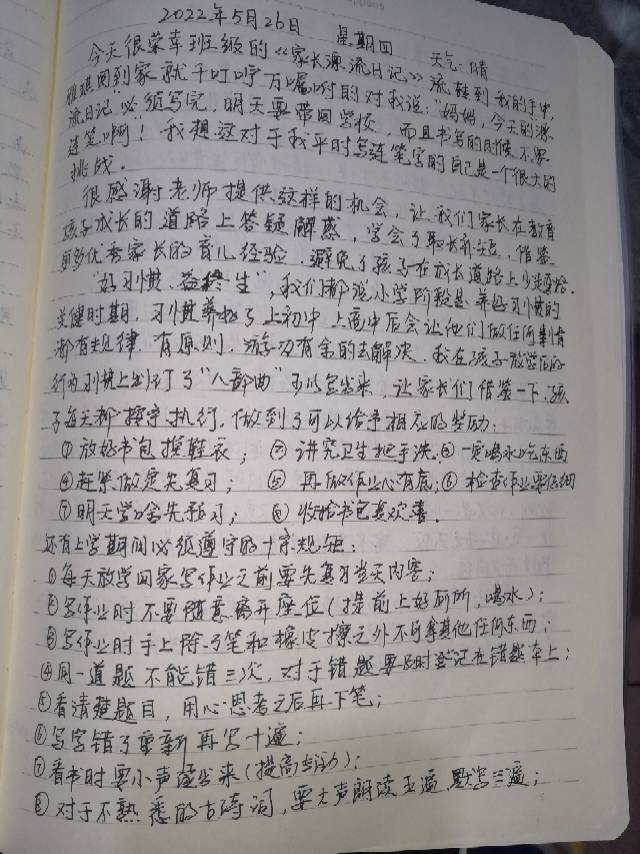 2022年5月26日 星期四 天气:晴
今天很荣幸班级的《家长源流日记》流转到我的手中,
雅琪回到家就千叮咛万嘱咐的对我说:"妈妈,今天的源
流日记"必须写完,明天要带回学校,而且书写的时候不要
连笔啊!我想这对于我平时写连笔字的自己是一个很大的
挑战。
很感谢老师提供这样的机会,让我们家长在教育
孩子成长的道路上答疑解惑,学会了取长补短,借鉴
更多优秀家长的育儿经验,避免了孩子在成长道路上少走弯路.
"好习惯,益终生",我们都说小学阶段是养好习惯的
关健时期,习惯养好了上初中上高中后会让他们做任何事情
都有规律,有原则,游刃有余的去解决,我在孩子放学后的
行为习惯上制订了"八部曲"可以写出来,让家长们借鉴一下,孩
子每天都按守执行,做到了可以给予相应的奖励:
①放好书包摆鞋衣;②讲究卫生把手洗.③一定喝水吃东西
④赶紧做完先复习;⑤再做作业心有底;⑥检查作业要仔细
⑦明天学啥先预习;⑧收拾书包喜欢喜.
还有上学期间必须遵守的十条规矩:
①每天放学回家写作业之前要先复习当天内容;
②写作业时不要随意离开座位(提前上好厕所,喝水);
③写作业时手上除了笔和橡皮擦之外不可拿其他任何东西;
④同一道题不能错三次,对于错题要及时登记在错题本上;
⑤看清楚题目,用心思考之后再下笔;
⑥写字错了重新再写十遍;
⑦看书时要小声读出来(提高专注力);
⑧对于不熟悉的古诗词,要大声朗读五遍,默写三遍;